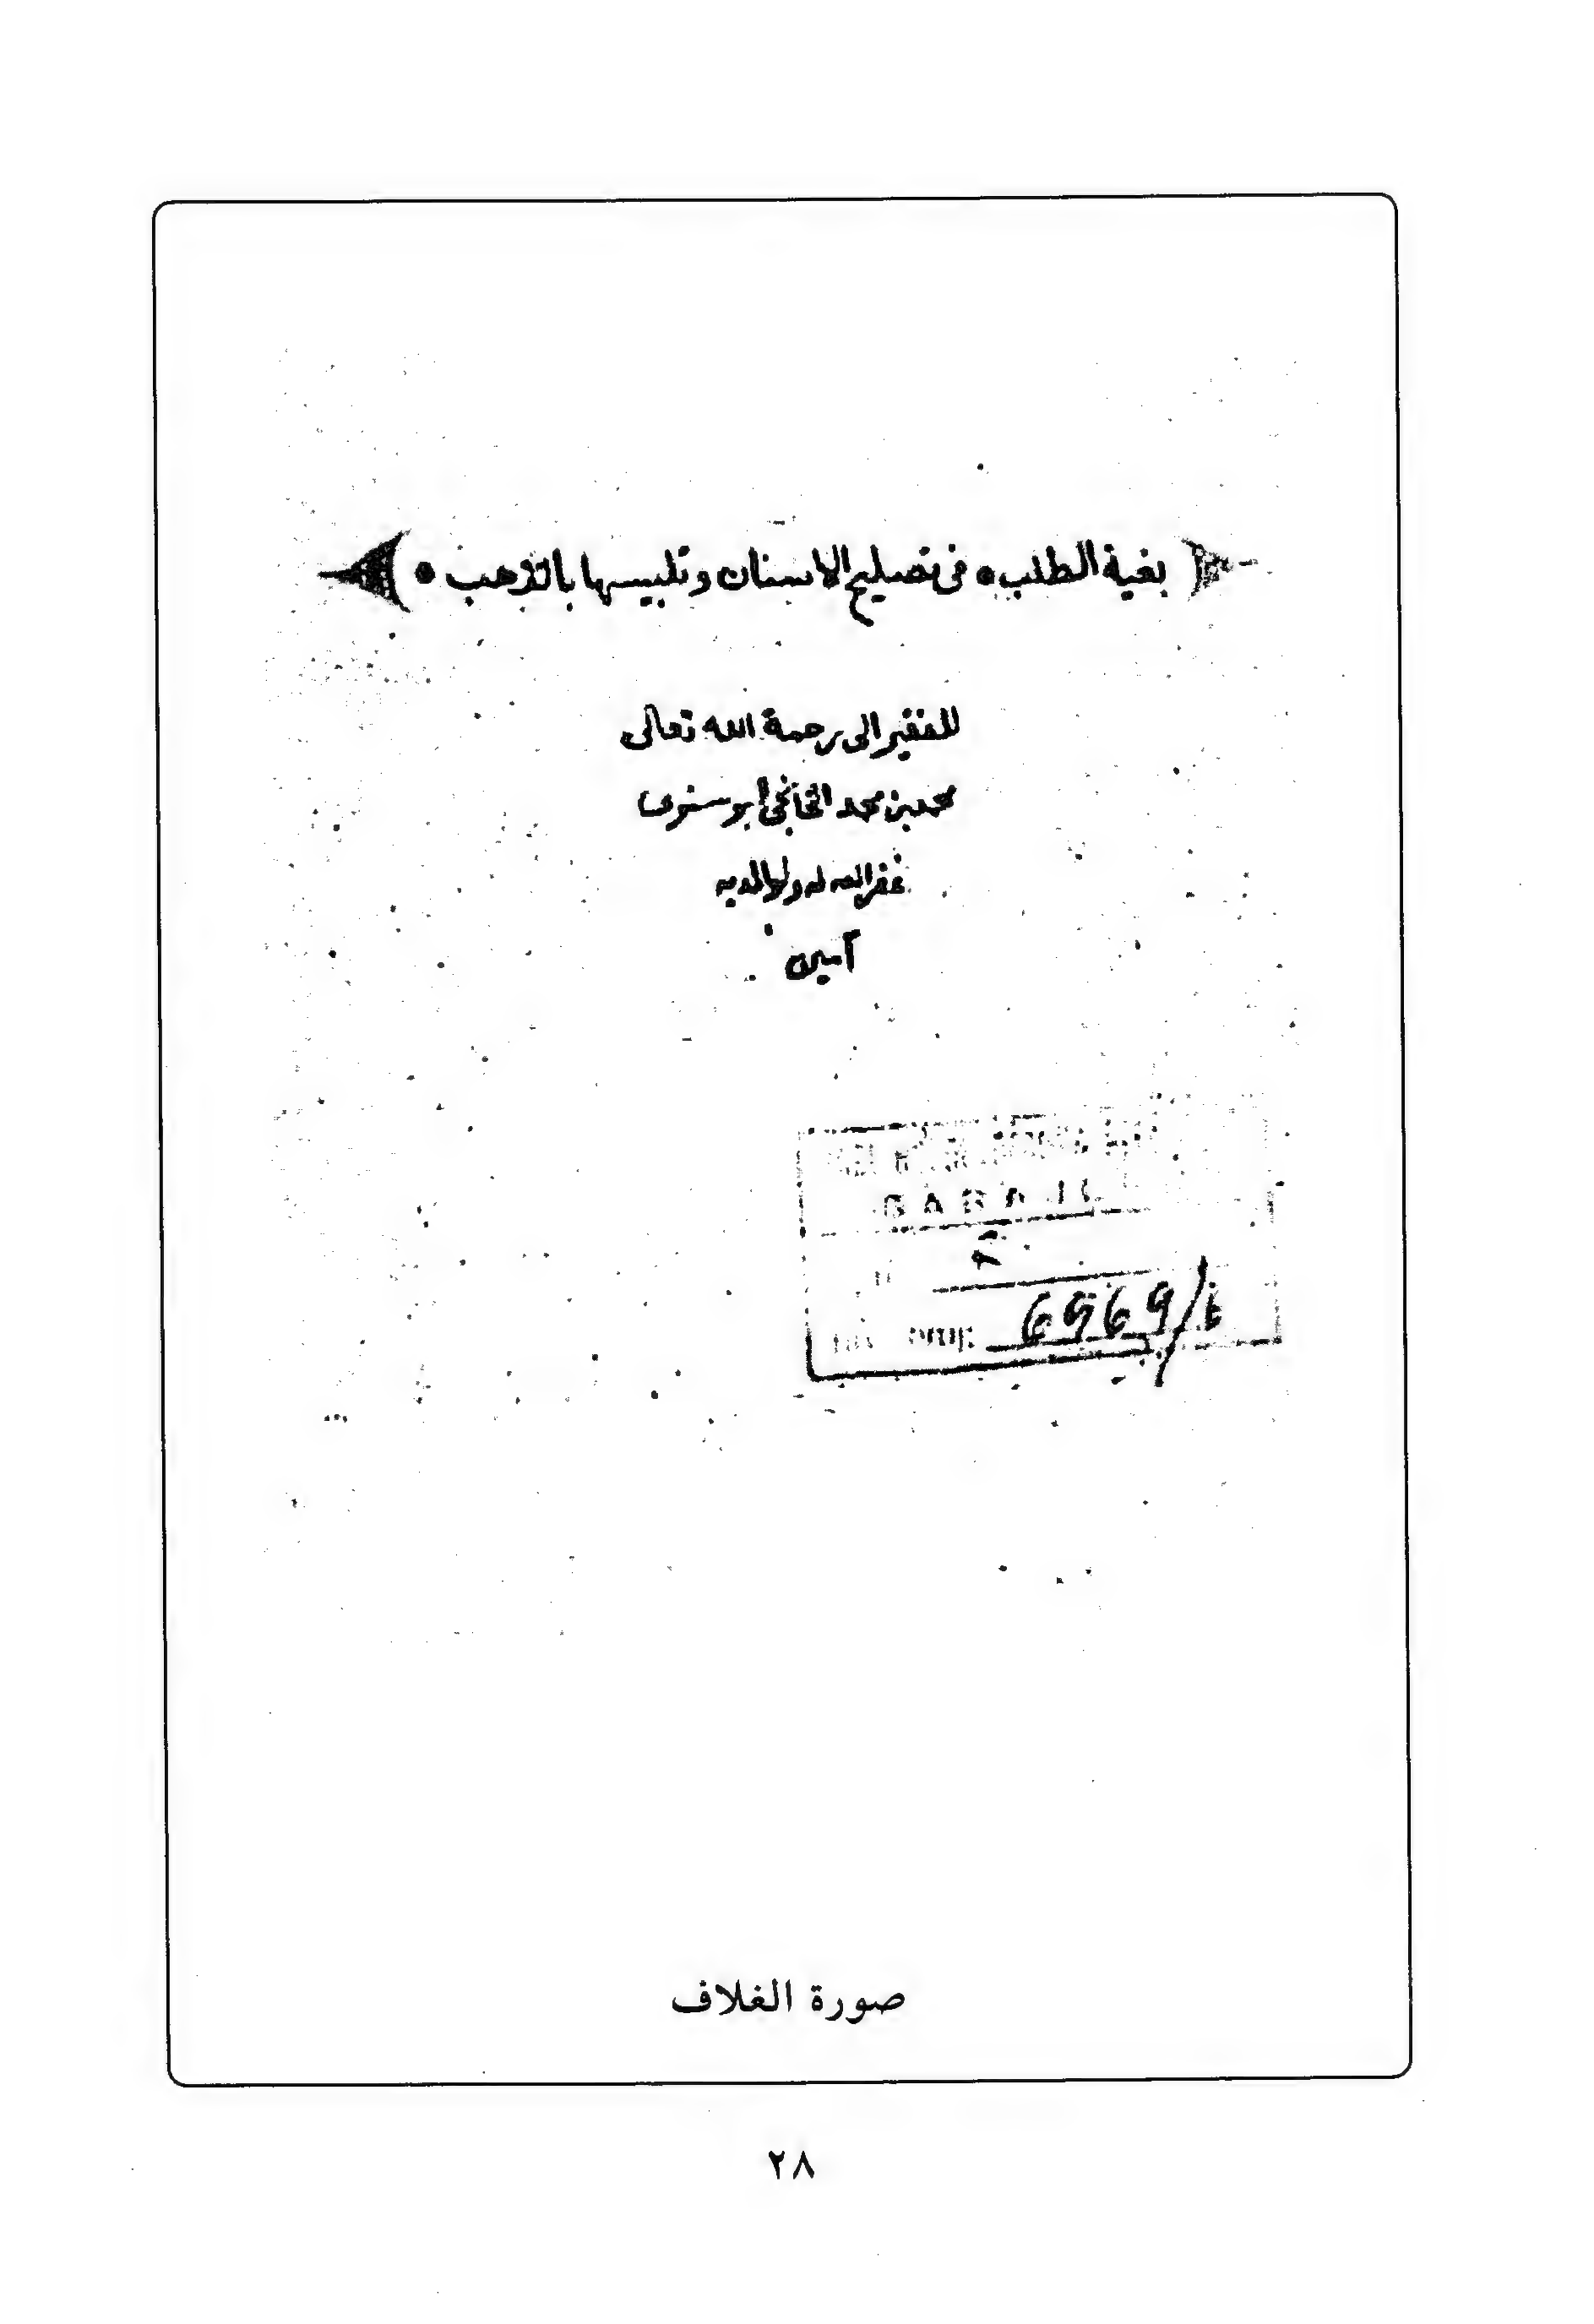 بغية الطلب • فى تصليح الاسنان وتلبيسها بالذهب •
للفقير الى رحمة الله تعالى
محمد بن محمد الخانجى البوسنوى
غفر الله له ولوالديه
آمين
6969/
صورة الغلاف
٢٨